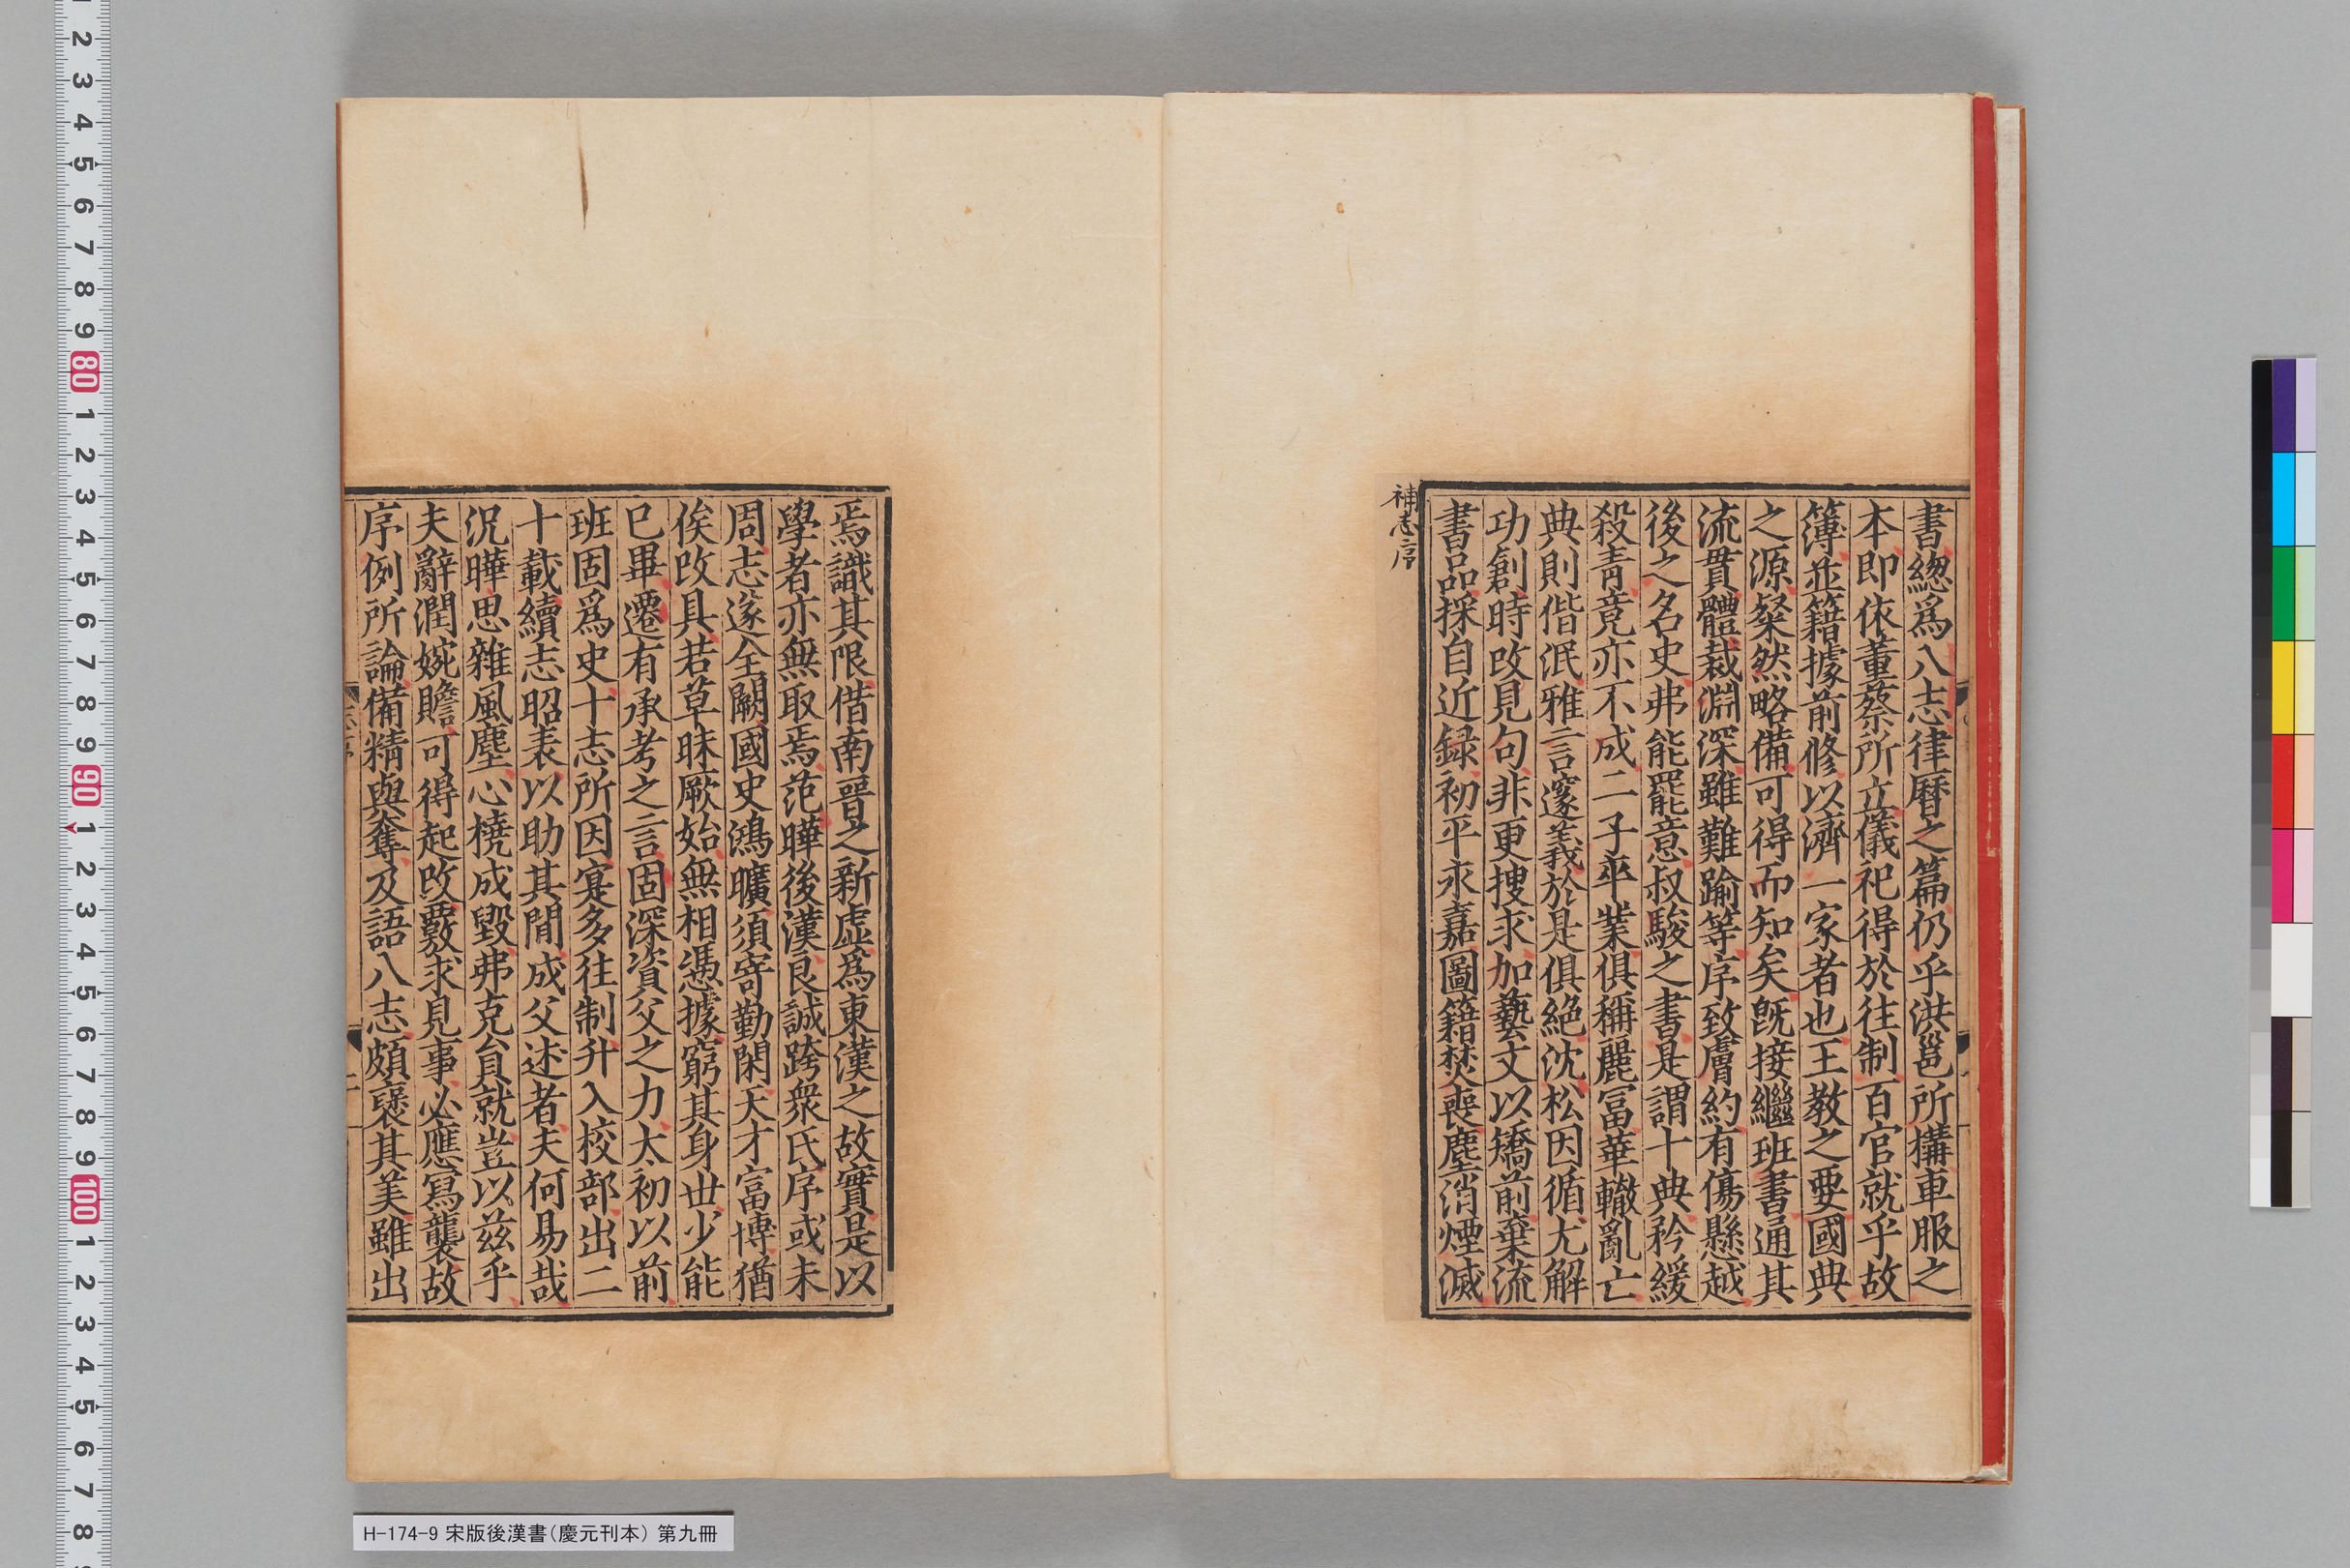 書緫爲八志律曆之篇仍乎洪邕所構車服之
本即依董蔡所立儀祀得於往制百官就乎故
簿並籍據前修以濟一家者也王教之要國典
之源粲然略備可得而知矣旣接繼班書通其
流貫體裁淵深雖難踰等序致膚約有傷懸越
後之名史弗能罷意叔駿之書是謂十典矜緩
殺青竟亦不成二子平業俱稱麗富華轍亂亡
典則偕泯雅言邃義於是俱絕沈松因循尤解
功創時改見句非更搜求加藝文以矯前棄流
書品採自近録初平永嘉圖籍焚喪塵消煙滅
補志序
焉識其限借南晉之新虛爲東漢之故實是以
學者亦無取焉范曄後漢良誠跨衆氏序或未
周志遂全闕國史鴻曠須寄勤閑天才富博猶
俟改具若草昧厥始無相憑據窮其身世少能
已畢遷有承考之言固深資父之力太初以前
班固爲史十志所因寔多往制升入校部出二
十載續志昭表以助其間成父述者夫何易哉
況曄思雜風塵心橈成毀弗克負就豈以茲乎
夫辭潤婉贍可得起改覈求見事必應寫襲故
序例所論備精與奪及語八志頗褒其美雖出
H-174-9 宋版後漢書(慶元刊本) 第九冊
2 3 4 5 6 7 8 9 80 1 2 3 4 5 6 7 8 9 90 1 2 3 4 5 6 7 8 9 100 1 2 3 4 5 6 7 8